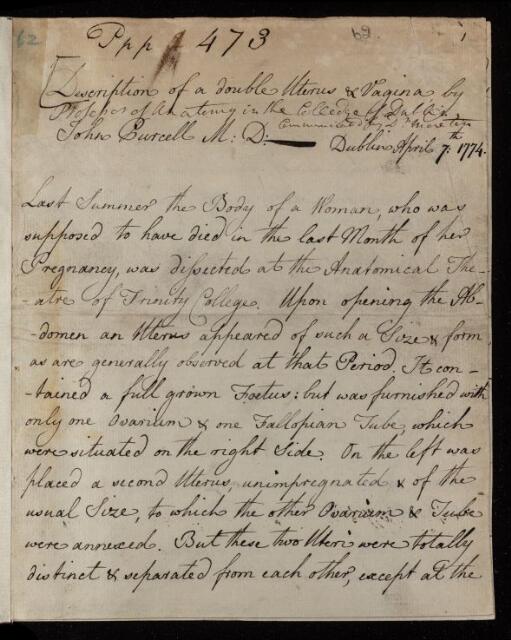 62
Ppp 473
62
1
[Description of a double Uterus & Vagina by
Professor of Anatomy in the Colledge of Dublin
John Purcell M: D: Communicated by Dr. Morton
Dublin April 7th: 1774.
Last Summer the Body of a Woman, who was
supposed to have died in the last Month of her
Pregnancy, was dissected at the Anatomical The-
-atre of Trinity College. Upon opening the Ab-
-domen an Uterus appeared of such a Size & form
as are generally observed at that Period. It con-
-tained a full grown Foetus: but was furnished with
only one Ovarium & one Fallopian Tube, which
were situated on the right Side. On the left was
placed a second Uterus, unimpregnated & of the
usual Size, to which the other Ovarium & Tube
were annexed. But these two Uteri were totally
distinct & separated from each other, except at the